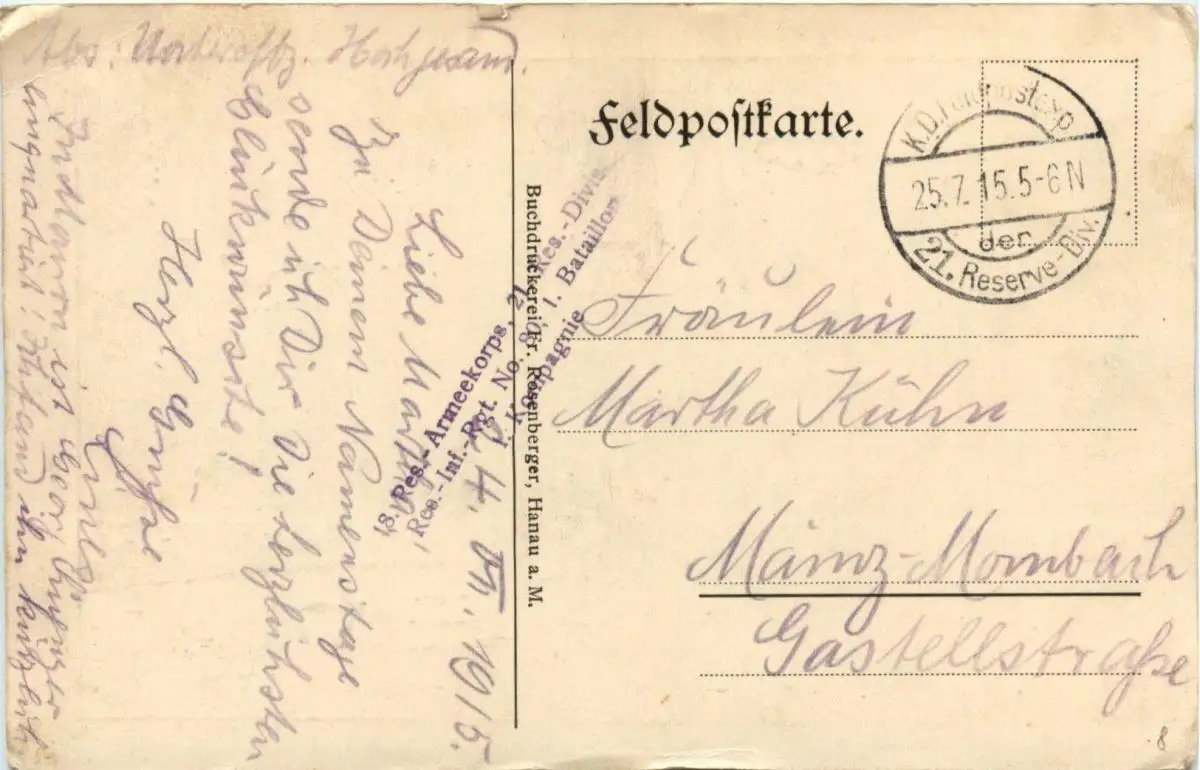 Abs: Unteroffz. Hochgesand.
24. VII. 1915.
Liebe Martha!
Zu Deinem Namenstage
sende ich Dir die herzlichsten
Glückwünsche!
Herzl. Grüße
ist
ihn kürzlich
Feldpostkarte.
K.D. Feldpostexp.
25.7.15.5-6N
der
21. Reserve-Div.
Fräulein
Martha Kühn
Mainz-Mombach
Gastellstraße
18. Res.-Armeekorps, 21. Res.-Divis
Res.-Inf.-Rgt. No. I. Bataillon
Kompagnie
Buchdruckerei Fr. Rosenberger, Hanau a. M.
8